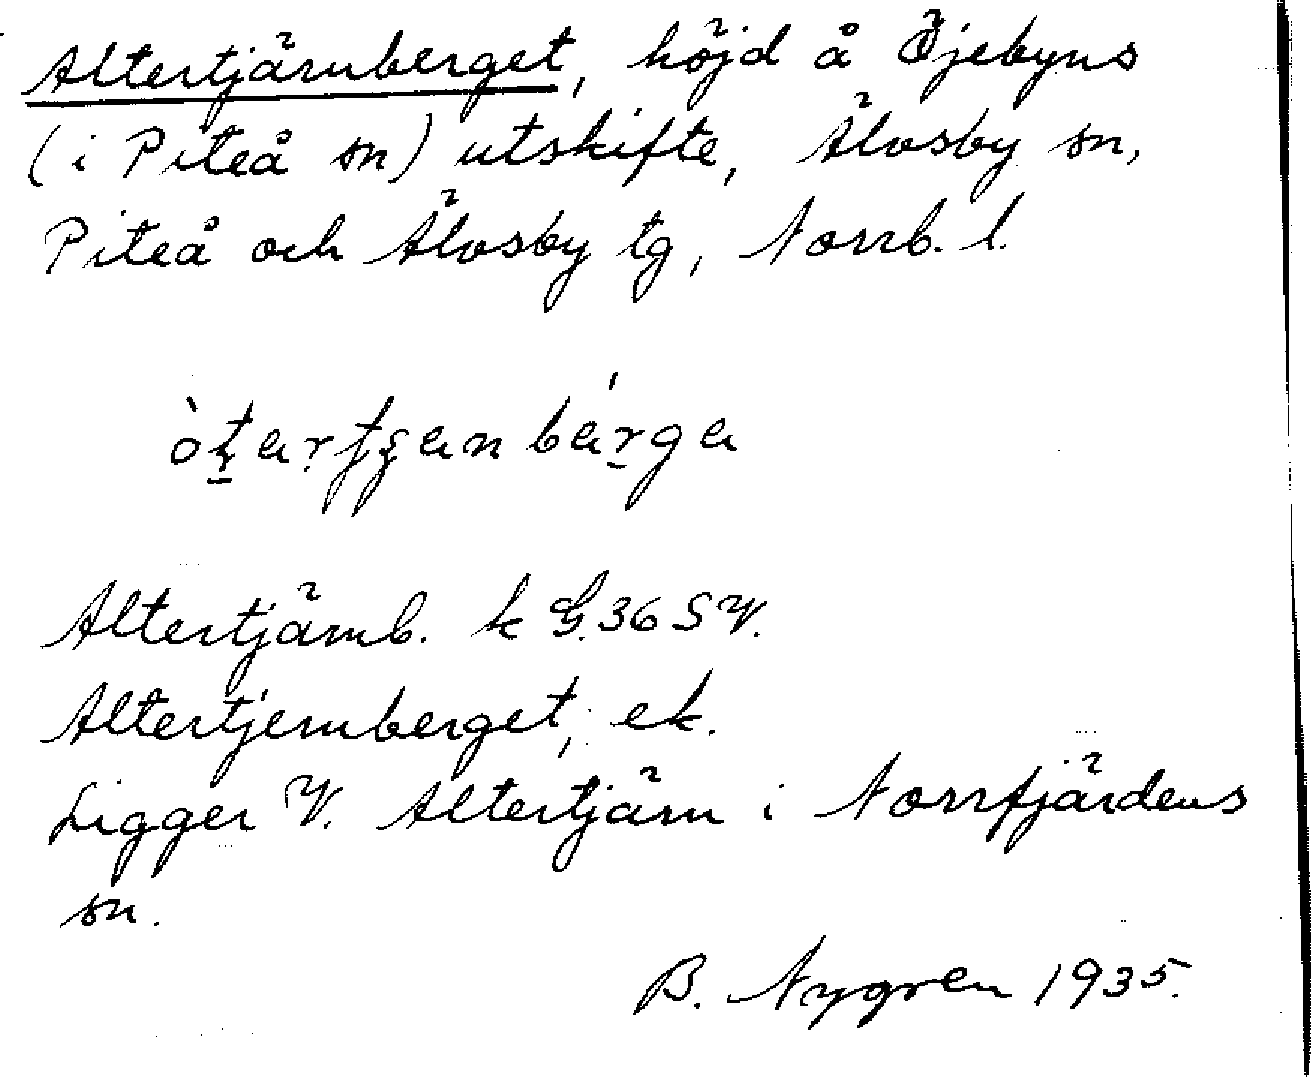 Altertjärnberget, höjd å Öjebyns
(i Piteå sn) utskifte, Älvsby sn,
Piteå och Älvsby tg, Norrb. l.
Altertjärnb. k G.36 SV.
Altertjernberget, ek.
Ligger V. Altertjärn i Norrfjärdens
sn.
B. Nygren 1935.